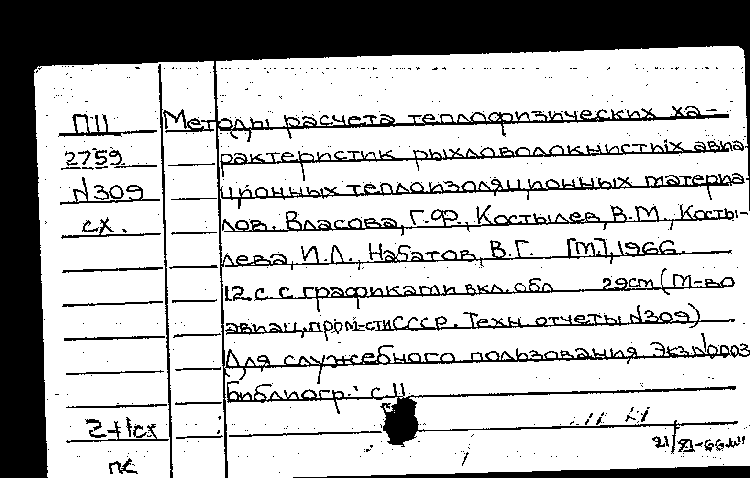 П11 Методы расчета теплофизических ха-
2759 рактеристик рыхловолокнистых авиа-
N309 ционных теплоизоляционных материа-
сх. лов. Власова, Г.Ф., Костылев, В.М., Косты-
лева, И.Л., Набатов, В.Г. [М.], 1966.
12 с. с графиками вкл. обл 29cm (М-во
авиац. пром-сти СССР. Техн отчеты N309)
Для служебного пользования Экз N0003
Библиогр.: с 11
2+1сх
пс